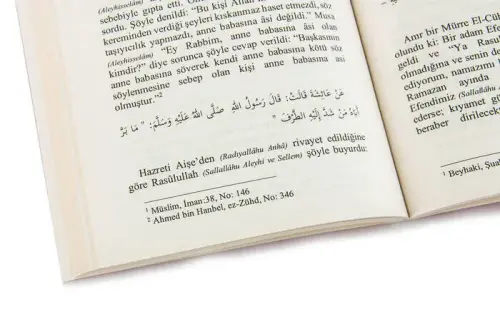 (Aleyhisselâm)
sebebiyle gıpta etti. 
sordu. Şöyle denildi: "Bu kişi Allah
kereminden verdiği şeyleri kıskanmaz haset etmezdi, söz
taşıyıcılık yapmazdı, anne babasına âsi değildi." Musa
(Aleyhisselâm) "Ey Rabbim, anne babasına âsi olan
kimdir?" diye sorunca şöyle cevap verildi: "Başkasının
anne babasına söverek kendi anne babasına kötü söz
söylenmesine sebep olan kişi anne babasına âsi
olmuştur."2
عَنْ عَائِشَةَ قَالَتْ: قَالَ رَسُولُ اللهِ صَلَّى اللهُ عَلَيْهِ وَسَلَّمَ: " مَا بَرَّ
أَبَاهُ مَنْ شَدَّ إِلَيْهِ الطَّرْفَ "
Hazreti Aişe'den (Radıyallâhu Anhâ) rivayet edildiğine
göre Rasûlullah (Sallallâhu Aleyhi ve Sellem) şöyle buyurdu:
1 Müslim, İman:38, No: 146
2 Ahmed bin Hanbel, ez-Zühd, No: 346
Amr bir Mürre El-Cü
olundu ki: Bir adam Efe
geldi ve "Ya Rasû
olmadığına ve senin
ediyorum, namazımı
Ramazan ayında
Efendimiz (Sallallâhu
ederse; kıyamet gü
beraber dirilecekti
1 Beyhaki, Şua